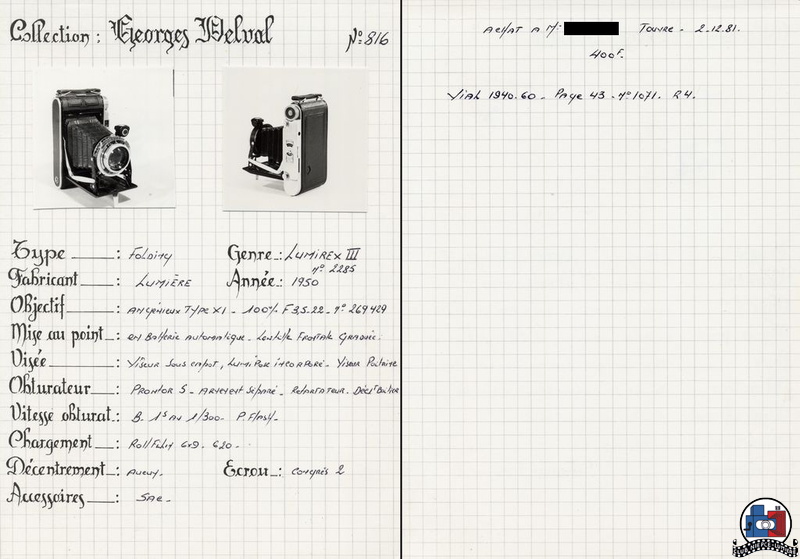 Collection : Georges Delval
N° 816
Type : Folding
Genre : LUMIREX III
n° 2285
Fabricant : LUMIÈRE
Année : 1950
Objectif : ANGÉNIEUX TYPE X1 - 100% F 3,5-22 - n° 269429
Mise au point : en Batterie automatique - Lentille Frontale Graduée.
Visée : Viseur sous capot, LUMIPOR incorporé - Viseur Poitrine
Obturateur : PRONTOR S - ARMEMENT Séparé - RETARDATEUR. Décl' Boitier
Vitesse obturat. : B. 1s AU 1/300 - P. Flash.
Chargement : Roll Film 6x9 - 620 -
Décentrement : Aucun.
Ecrou : Congrès 2
Accessoires : SAC -
ACHAT A Mr TOUVRE - 2.12.81.
400F.
VIAL 1940.60 - Page 43 - n° 1071. R4.